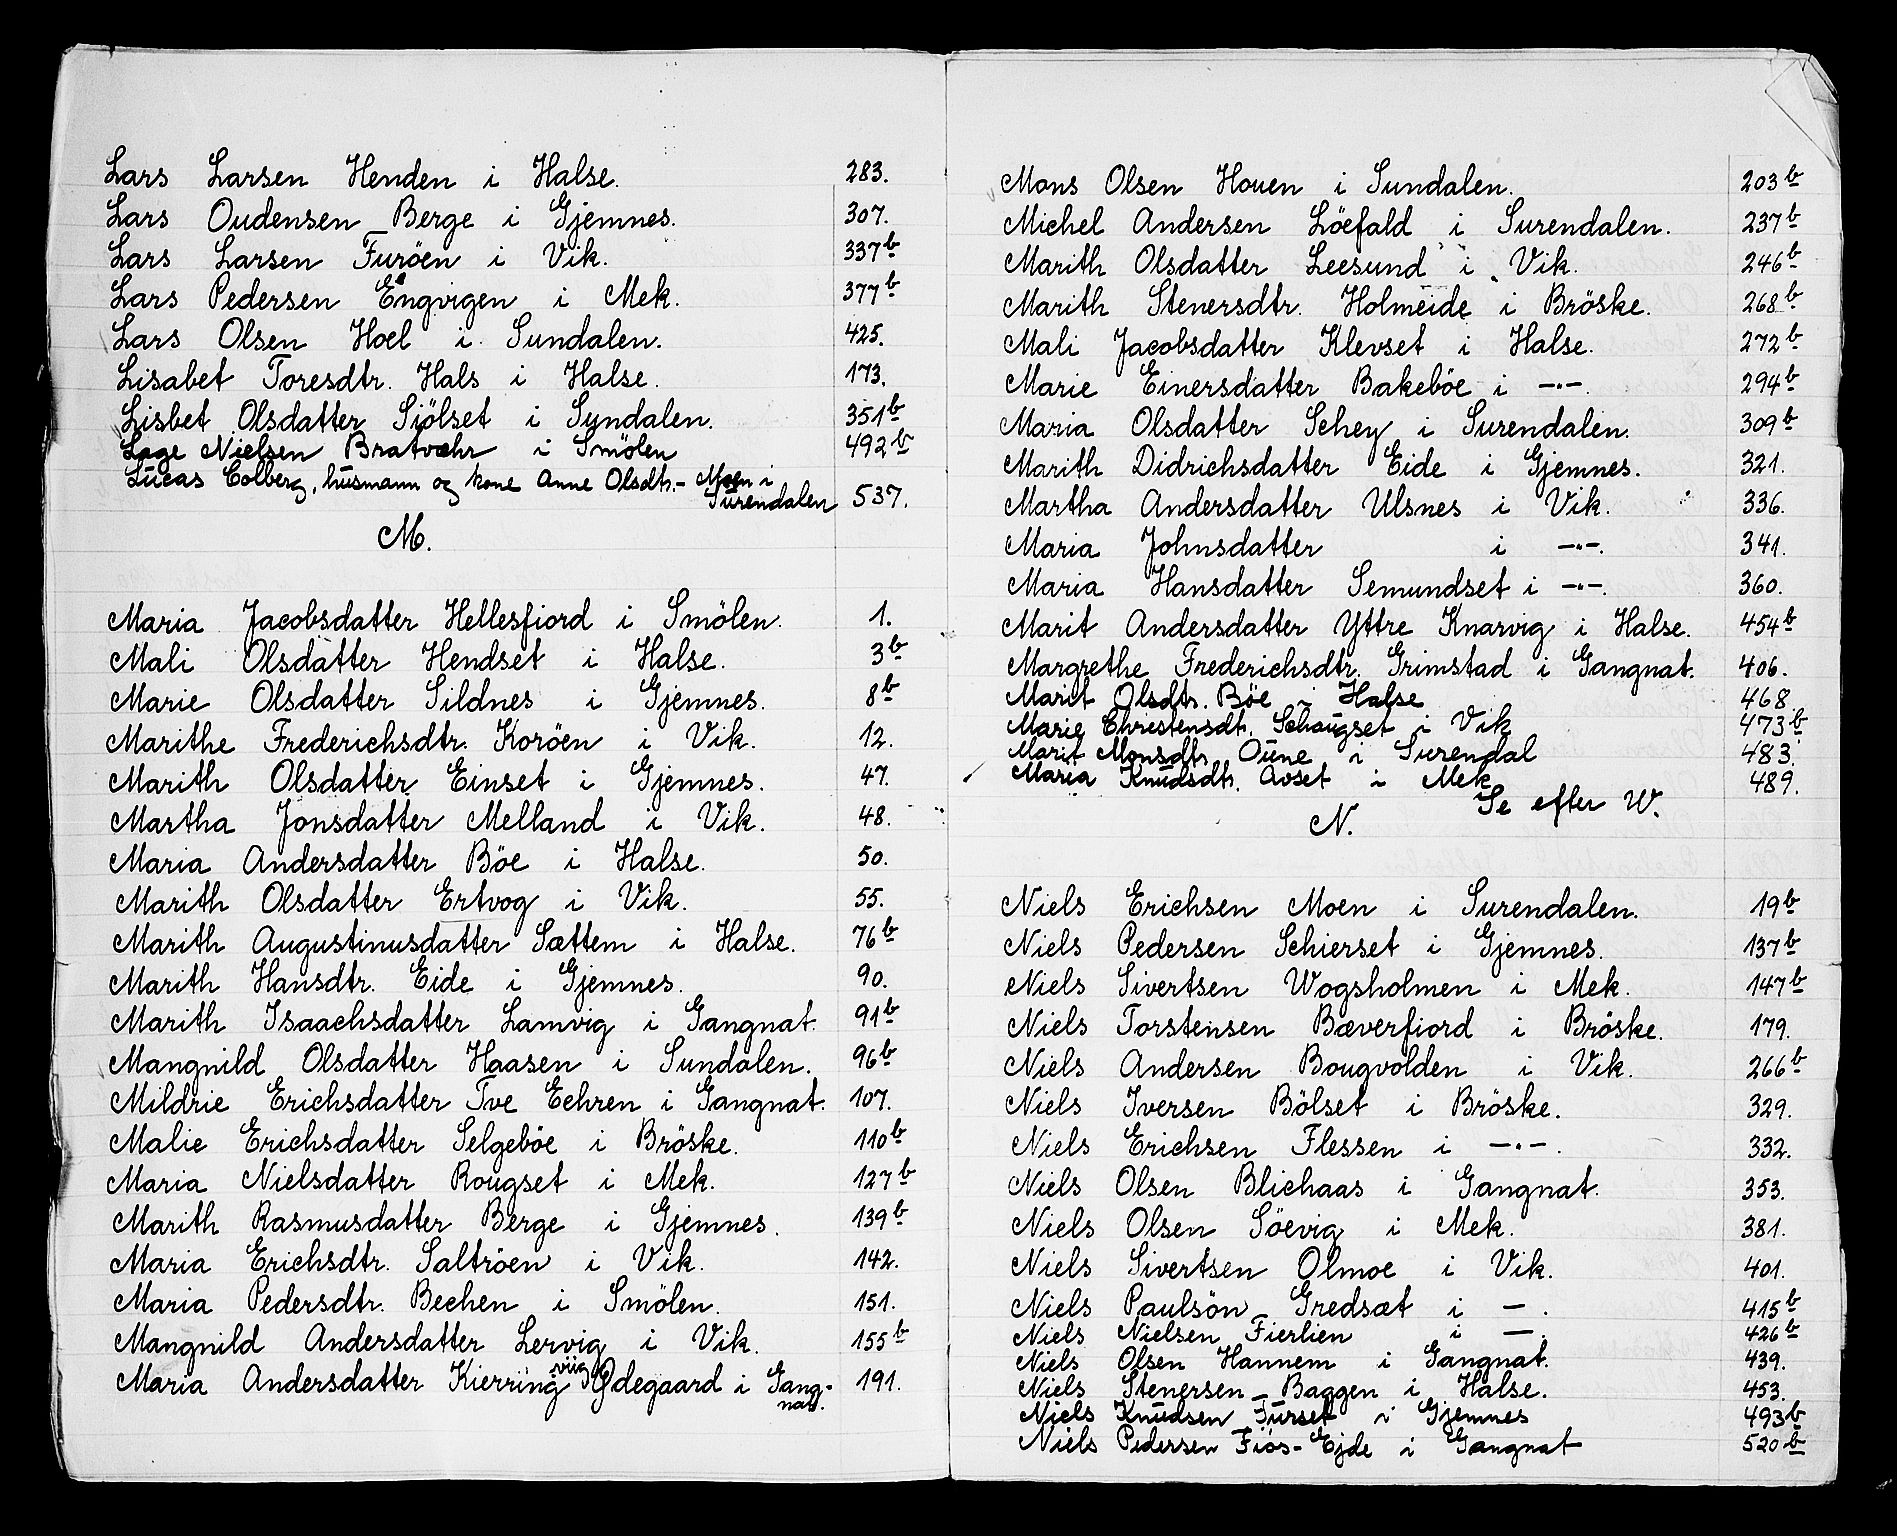 Lars Larsen Henden i Halse. 283.
Lars Oudensen Berge i Gjemnes. 307.
Lars Larsen Furöen i Vik. 337b
Lars Pedersen Engvigen i Mek. 377b
Lars Olsen Hoel i Sundalen. 425.
Lisabet Toresdtr. Hals i Halse. 173.
Lisbet Olsdatter Siölset i Sundalen. 351b
Lage Nielsen Bratvæhr i Smölen 492b
Lucas Colberg, husmann og kone Anne Olsdtr. - Moen i
Surendalen 537.
M.
Maria Jacobsdatter Hellesfiord i Smölen. 1.
Mali Olsdatter Hendset i Halse. 3b
Marie Olsdatter Sildnes i Gjemnes. 8b
Marithe Frederichsdtr. Koröen i Vik. 12.
Marith Olsdatter Einset i Gjemnes. 47.
Martha Jonsdatter Melland i Vik. 48.
Maria Andersdatter Böe i Halse. 50.
Marith Olsdatter Ertvog i Vik. 55.
Marith Augustinusdatter Sættem i Halse. 76b
Marith Hansdtr. Eide i Gjemnes. 90.
Marith Isaachsdatter Lamvig i Gangnat. 91b
Mangnild Olsdatter Haasen i Sundalen. 96b
Mildrie Erichsdatter Tve Eehren i Gangnat. 107.
Malie Erichsdatter Selgeböe i Bröske. 110b
Maria Nielsdatter Rougset i Mek. 127b
Marith Rasmusdatter Berge i Gjemnes. 139b
Maria Erichsdtr. Saltröen i Vik. 142.
Maria Pedersdtr. Bechen i Smölen. 151.
Mangnild Andersdatter Lervig i Vik. 155b
Maria Andersdatter Kierringviig Ødegaard i Gang-
nat. 191.
Mons Olsen Houen i Sundalen. 203b
Michel Andersen Löefald i Surendalen. 237b
Marith Olsdatter Leesund i Vik. 246b
Marith Stenersdtr. Holmeide i Bröske. 268b
Mali Jacobsdatter Klevset i Halse. 272b
Marie Einersdatter Bakeböe i -"- 294b
Maria Olsdatter Schey i Surendalen. 309b
Marith Didrichsdatter Eide i Gjemnes. 321.
Martha Andersdatter Ulsnes i Vik. 336.
Maria Johnsdatter i -"-. 341.
Maria Hansdatter Semundset i -"-. 360.
Marit Andersdatter Yttre Knarvig i Halse. 454b
Margrethe Frederichsdtr. Grimstad i Gangnat. 406.
Marit Olsdtr. Böe i Halse 468
Marie Chrestensdtr. Schougset i Vik 473b
Marit Monsdtr. Oune i Surendal 483.
Maria Knudsdtr. Avset i Mek 489.
Se efter W.
N.
Niels Erichsen Moen i Surendalen. 19b
Niels Pedersen Schierset i Gjemnes. 137b
Niels Sivertsen Wogsholmen i Mek. 147b
Niels Torstensen Bæverfiord i Bröske. 179.
Niels Andersen Bougvolden i Vik. 266b
Niels Iversen Bölset i Bröske. 329.
Niels Erichsen Flessen i -"-. 332.
Niels Olsen Blichaas i Gangnat. 353.
Niels Olsen Söevig i Mek. 381.
Niels Sivertsen Olmoe i Vik. 401.
Niels Paulsön Gredsæt i -. 415b
Niels Nielsen Fierlien i -. 426b
Niels Olsen Hannem i Gangnat. 439.
Niels Stenersen Baggen i Halse. 453.
Niels Knudsen Furset i Gjemnes 493b
Niels Pedersen Fiös-Ejde i Gangnat 520b